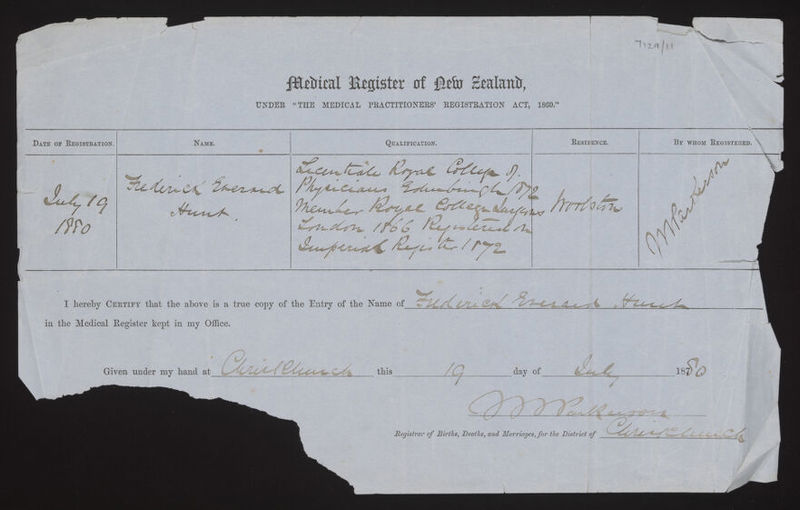 7129/11
Medical Register of New Zealand,
UNDER "THE MEDICAL PRACTITIONERS' REGISTRATION ACT, 1869."
DATE OF REGISTRATION. NAME. QUALIFICATION. RESIDENCE. BY WHOM REGISTERED.
July 19
1880
Federick Everard
Hunt.
Licentiate Royal College of
Physicians Edinburgh 1872
Member Royal College Surgeons
London 1866 Registered on
Imperial Register 1872
Woolston
Parkerson
I hereby CERTIFY that the above is a true copy of the Entry of the Name of Federick Everard Hunt
in the Medical Register kept in my Office.
Given under my hand at Christchurch this 19 day of July 1880
Parkerson
Registrar of Births, Deaths, and Marriages, for the District of Christchurch